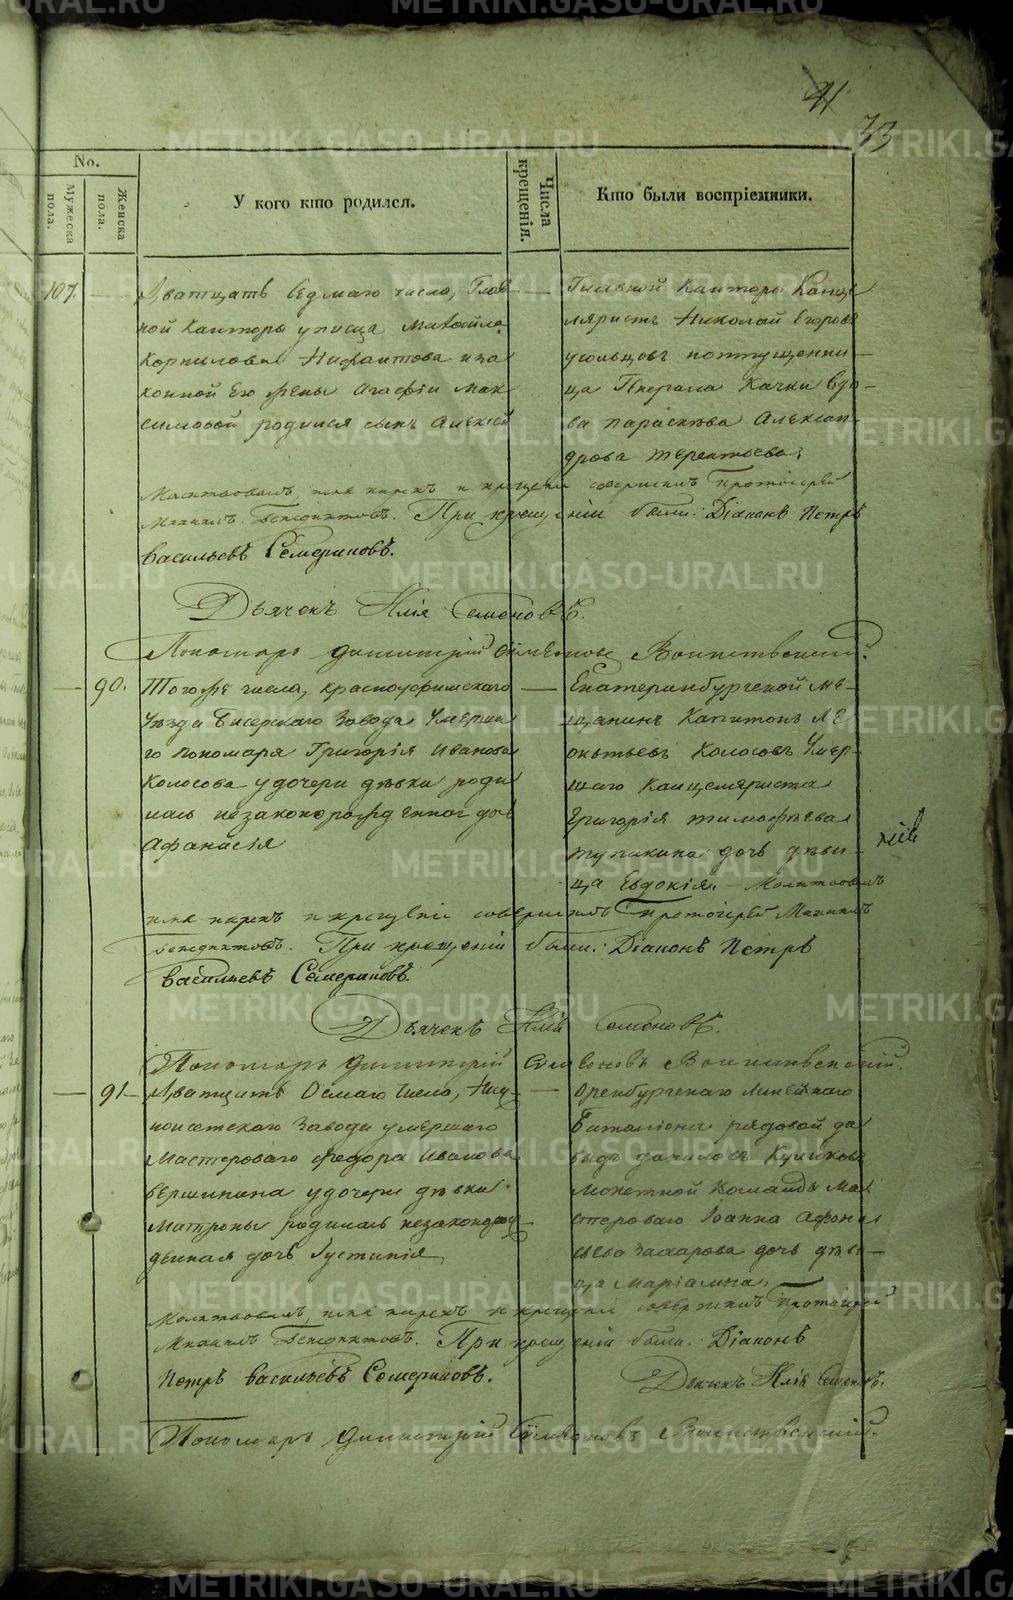 41
33
No.
Мужеска пола.
Женска пола.
У кого кто родился.
Числа крещенія.
Кто были воспріемники.
107.
Дватцать Седмаго числа, Глав-
ной Канторы у писца Михайла
Корнилова Нифантова и за
конной Его жены Агафіи Мак
симовой родился сынъ Алексей
Главной Канторы Канце
ляристъ Николай Егоровъ
усольцовъ
ца Генерала Качки вдо-
ва параскева Алексан-
дрова терентьева.
Молитвовалъ, имя нарекъ и крещеніе совершилъ Протоіерей
Михаилъ Бенедиктовъ. При крещеніи были: Діаконъ Петръ
Васильевъ Семериковъ.
Дьячекъ Илія Семеновъ.
Пономарь Димитрій Симеоновъ Воинственскій.
90.
Тогоже числа, красноуфимскаго
Уѣзда Бисерскаго Завода Умерша
го пономаря Григорія Иванова
Колосова у дочери дѣвки роди
лась незаконорожденног доч
Афанасія
Екатеринбургской ме-
щанинъ Капитонъ Ле
онтьевъ Колосовъ Умер-
шаго Канцеляриста
Григорія тимофѣева
тупикина дочь дѣви-
ца Евдокія. Молитвовалъ
имя нарекъ и крещеніе совершилъ Протоіерей Михаилъ
Бенедиктовъ. При крещеніи были: Діаконъ Петръ
Васильевъ Семериковъ.
Дьячекъ Илія Семеновъ.
Пономарь Димитрій Симеоновъ Воинственскій.
91
Дватцать Осмаго числа, Ниж-
неисетскаго Завода умершаго
Мастероваго федора Иванова
вершинина у дочери дѣвки
Матроны родилась незаконорож-
денная дочь Іустинія
Оренбургскаго Линейнаго
Баталіона рядовой да
выдъ даниловъ Куликовъ
Монетной Команды Ма
стероваго Іоанна Афона
сьева Захарова дочь дѣви-
ца Маріамна.
Молитвовалъ, имя нарекъ и крещеніе совершилъ Протоіерей
Михаилъ Бенедиктовъ. При крещеніи были: Діаконъ
Петръ Васильевъ Семериковъ.
Дьячекъ Илія Семеновъ.
Пономарь Димитрій Симеоновъ Воинственскій.
METRIKI.GASO-URAL.RU